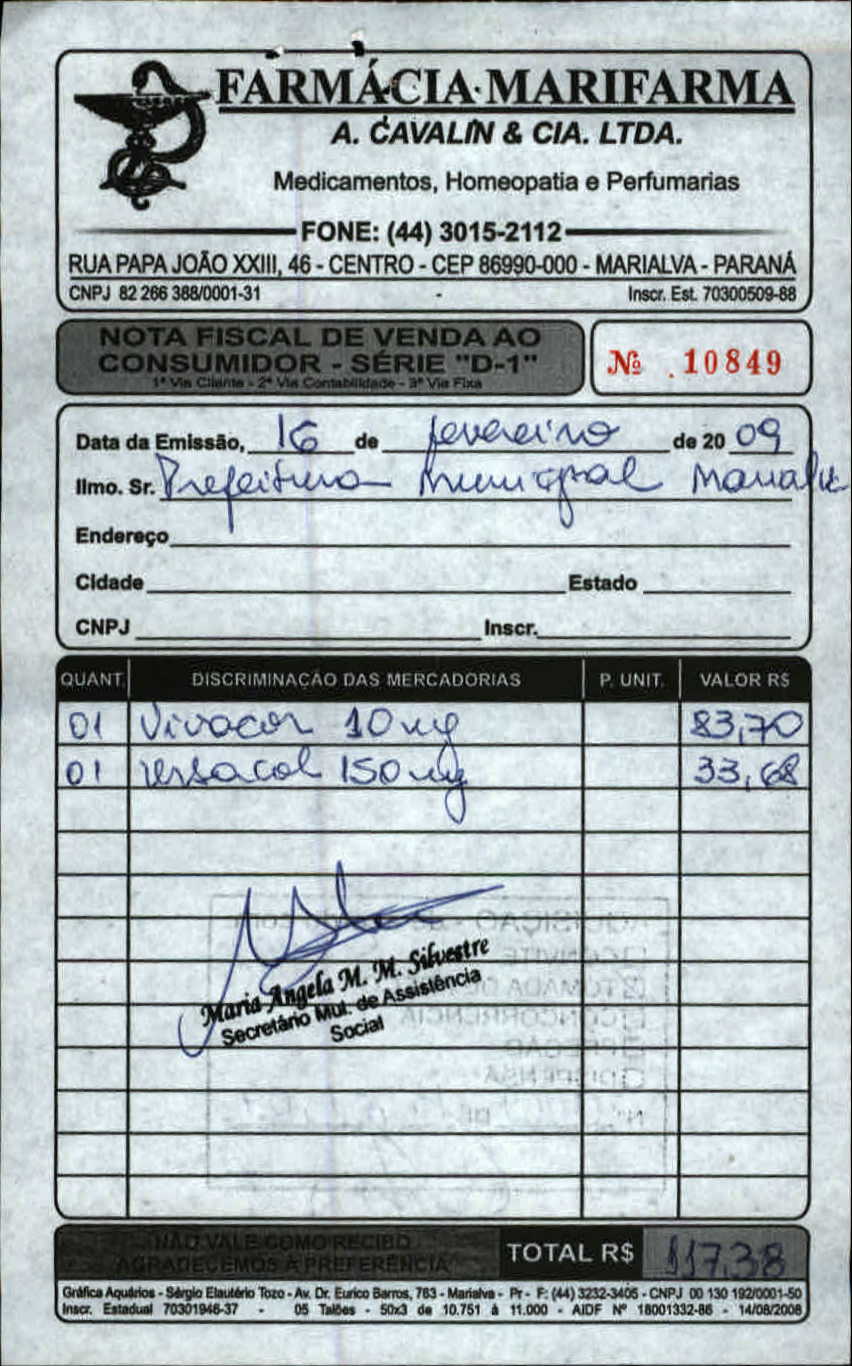 FARMÁCIA MARIFARMA
A. CAVALIN & CIA. LTDA.
Medicamentos, Homeopatia e Perfumarias
FONE: (44) 3015-2112
RUA PAPA JOÃO XXIII, 46 - CENTRO - CEP 86990-000 - MARIALVA - PARANÁ
CNPJ 82 266 388/0001-31 - Inscr. Est. 70300509-88
NOTA FISCAL DE VENDA AO
CONSUMIDOR - SÉRIE "D-1"
1ª Via Cliente - 2ª Via Contabilidade - 3ª Via Fixa
Nº 10849
Data da Emissão, 16 de fevereiro de 20 09
Ilmo. Sr. Prefeitura Municipal Marialva
Endereço
Cidade Estado
CNPJ Inscr.
QUANT. DISCRIMINAÇÃO DAS MERCADORIAS P. UNIT. VALOR R$
01 Vivacor 10 mg 83,70
01 Versacol 150 mg 33,68
AQUISIÇÃO
CONVITE
TOMADA DE
CONCORRÊNCIA
PREGÃO
DISPENSA
Nº
Maria Angela M. M. Silvestre
Secretário Mul. de Assistência
Social
NÃO VALE COMO RECIBO
AGRADECEMOS A PREFERÊNCIA
TOTAL R$ 117,38
Gráfica Aquários - Sérgio Elautério Tozo - Av. Dr. Eurico Barros, 763 - Marialva - Pr - F: (44) 3232-3405 - CNPJ 00 130 192/0001-50
Inscr. Estadual 70301946-37 - 05 Talões - 50x3 de 10.751 à 11.000 - AIDF Nº 18001332-86 - 14/08/2008